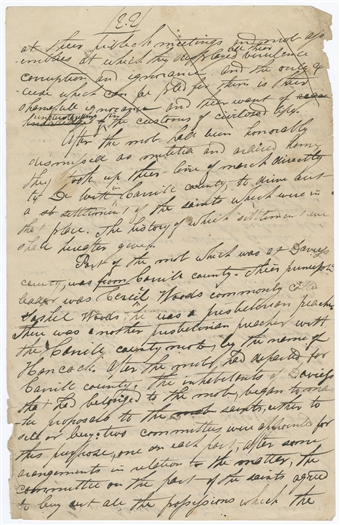 (22)
at their public meetings and mob as-
semblies at which they displayed all their virulence
corruption and ignorance and the only ex-
cuse which can be plead for them is their
shameful ignorance and their want of
the customs of civilized life.
After the mob had been honorably
dismissed as militia and arived home
they took up their line of march directly
to De Witt in Carrill county, to drive out
a settlement of the saints which were in
that place. The history of which settlement we
shall hereafter give.
Part of the mob which was at Daviess
county, was from Carrill county. Their principle
leader was Ceriel Woods commonly called
Sashiel Woods he was a presbeterian preacher
there was another presbeterian preacher with
the Carrill county mob by the name of
Hancock. After the mob, had departed for
Carrill county. The inhabitents of Daviess
that had belonged to the mob, began to make
the proposals to the saints, either to
sell or buy, two committees were appointed for
this purpose, one on each part, after some
arangements in relation to the matter, the
committee on the part of the saints agreed
to buy out all the possessions which the